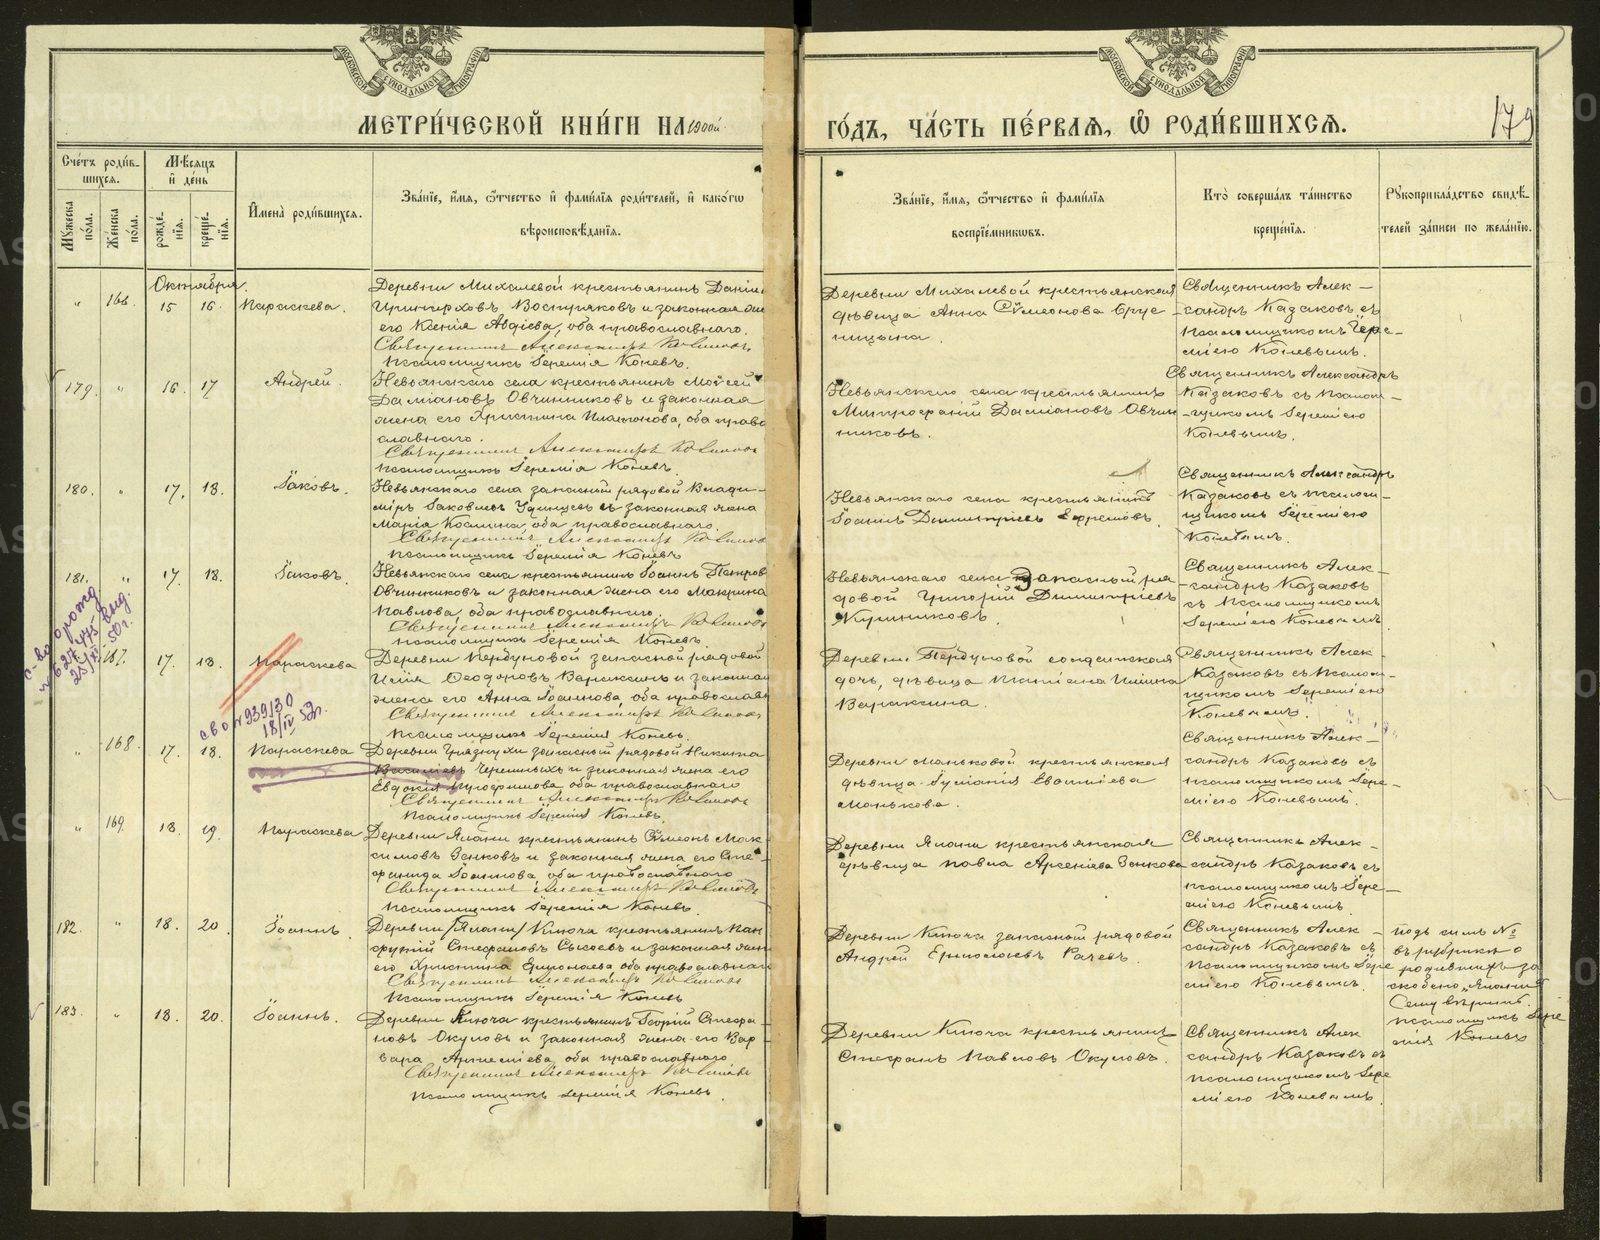 МЕТРИ́ЧЕСКОЙ КНИ́ГИ НА 1900й
ГО́ДЪ, ЧА́СТЬ ПЕ́РВАЯ, Ѡ҆ РОДИ́ВШИХСЯ.
179
Сче́тъ роди́в-
шихся.
Мѣ́сяцъ
и҆ де́нь
Мꙋ́жеска по́ла.
Же́нска по́ла.
рожде́нїѧ.
креще́нїѧ.
И҆мена̀ роди́вшихся.
Зва́нїе, и҆́мя, ѻ҆́тчество и҆ фамѝлїя роди́телей, и҆ како́гѡ
вѣроисповѣ́данїя.
Зва́нїе, и҆́мя, ѻ҆́тчество и҆ фамѝлїя
воспрїе́мникѡвъ.
Кто̀ соверша́лъ та́инство
креще́нїя.
Рꙋкоприкла́дство свидѣ́-
телей за́писи по жела́нїю.
Октября.
" 166. 15 16. Параскева.
Деревни Михалевой крестьянинъ Даніилъ
Востряковъ и законная жена
его Ксенія Авдіева, оба православнаго.
Священникъ Александръ Казаковъ
Псаломщикъ Іеремія Коневъ.
Деревни Михалевой крестьянская
дѣвица Анна Сѵмеонова Брус-
ницына.
Священникъ Алек-
сандръ Казаковъ съ
псаломщикомъ Іере-
міею Коневымъ.
179. " 16. 17 Андрей.
Невьянскаго села крестьянинъ Моѵсей
Даміановъ Овчинниковъ и законная
жена его Христина Платонова, оба право-
славнаго.
Священникъ Александръ Казаковъ
псаломщикъ Іеремія Коневъ.
Невьянскаго села крестьянинъ
Митрофаній Даміановъ Овчин
никовъ.
Священникъ Александръ
Казаковъ съ псалом-
щикомъ Іереміею
Коневымъ.
180. " 17. 18. Іаковъ.
Невьянскаго села запасный рядовой Влади-
міръ Іаковлевъ и законная жена
Марія Космина, оба православнаго.
Священникъ Александръ Казаковъ
псаломщикъ Іеремія Коневъ
Невьянскаго села крестьянинъ
Іоаннъ Димитріевъ Ефремовъ.
Священникъ Александръ
Казаковъ съ псалом-
щикомъ Іереміею
Коневымъ.
181. " 17. 18. Іаковъ.
Невьянскаго села крестьянинъ Іоаннъ Петровъ
Овчинниковъ и законная жена его Макрина
Павлова, оба православнаго.
Священникъ Александръ Казаковъ
псаломщикъ Іеремія Коневъ.
Невьянскаго села запасный ря
довой Григорій Димитріевъ
Священникъ Алек-
сандръ Казаковъ
съ псаломщикомъ
Іереміею Коневымъ.
с-во о рожд
№ 627475 выд.
25/XI-50г.
167. 17. 18. Параскева
Деревни запасный рядовой
Илія Ѳеодоровъ Вараксинъ и законная
жена его Анна Іоаннова, оба православн
Священникъ Александръ Казаковъ
псаломщикъ Іеремія Коневъ.
Деревни солдатская
дочь, дѣвица Татіана Иліина
Вараксина.
Священникъ Алек-
Казаковъ съ псалом-
щикомъ Іереміею
Коневымъ.
с-во №939130
18/IV 52г.
" 168. 17. 18. Параскева
Деревни Грязнухи запасный рядовой Никита
Василіевъ Черемныхъ и законная жена его
Евдокія Трофимова, оба православнаго
Священникъ Александръ Казаковъ
псаломщикъ Іеремія Коневъ.
Деревни Маньковой крестьянская
дѣвица Іуліанія
Манькова.
Священникъ Алек-
сандръ Казаковъ съ
псаломщикомъ Іере-
міею Коневымъ.
" 169. 18. 19. Параскева
Деревни Ялани крестьянинъ Сѵмеонъ Мак-
симовъ Зенковъ и законная жена его Сте-
фанида Іоаннова, оба православнаго
Священникъ Александръ Казаковъ
псаломщикъ Іеремія Коневъ.
Деревни Ялани крестьянская
дѣвица Павла Арсеніева Зенкова
Священникъ Алек-
сандръ Казаковъ съ
псаломщикомъ Іере-
міею Коневымъ.
182. " 18. 20. Іоаннъ.
Деревни /Ялани/ Ключа крестьянинъ Пан-
футій Стефановъ Сысоевъ и законная жена
его Христина Ермолаева, оба православнаго
Священникъ Александръ Казаковъ
псаломщикъ Іеремія Коневъ
Деревни Ключа запасный рядовой
Андрей Ермолаевъ Рачевъ.
Священникъ Алек-
сандръ Казаковъ съ
псаломщикомъ Іере
міею Коневымъ.
подъ симъ №
въ рубрикѣ о
родившихъ за
скоблено „Ялани"
Сему вѣримъ.
псаломщикъ Іере
мія Коневъ
183. " 18. 20. Іоаннъ.
Деревни Ключа крестьянинъ Георгій Стефа-
новъ Окуловъ и законная жена его Вар-
вара, оба православнаго.
Священникъ Александръ Казаковъ
псаломщикъ Іеремія Коневъ.
Деревни Ключа крестьянинъ
Стефанъ Павловъ Окуловъ.
Священникъ Алек
сандръ Казаковъ съ
псаломщикомъ Іере
міею Коневымъ.